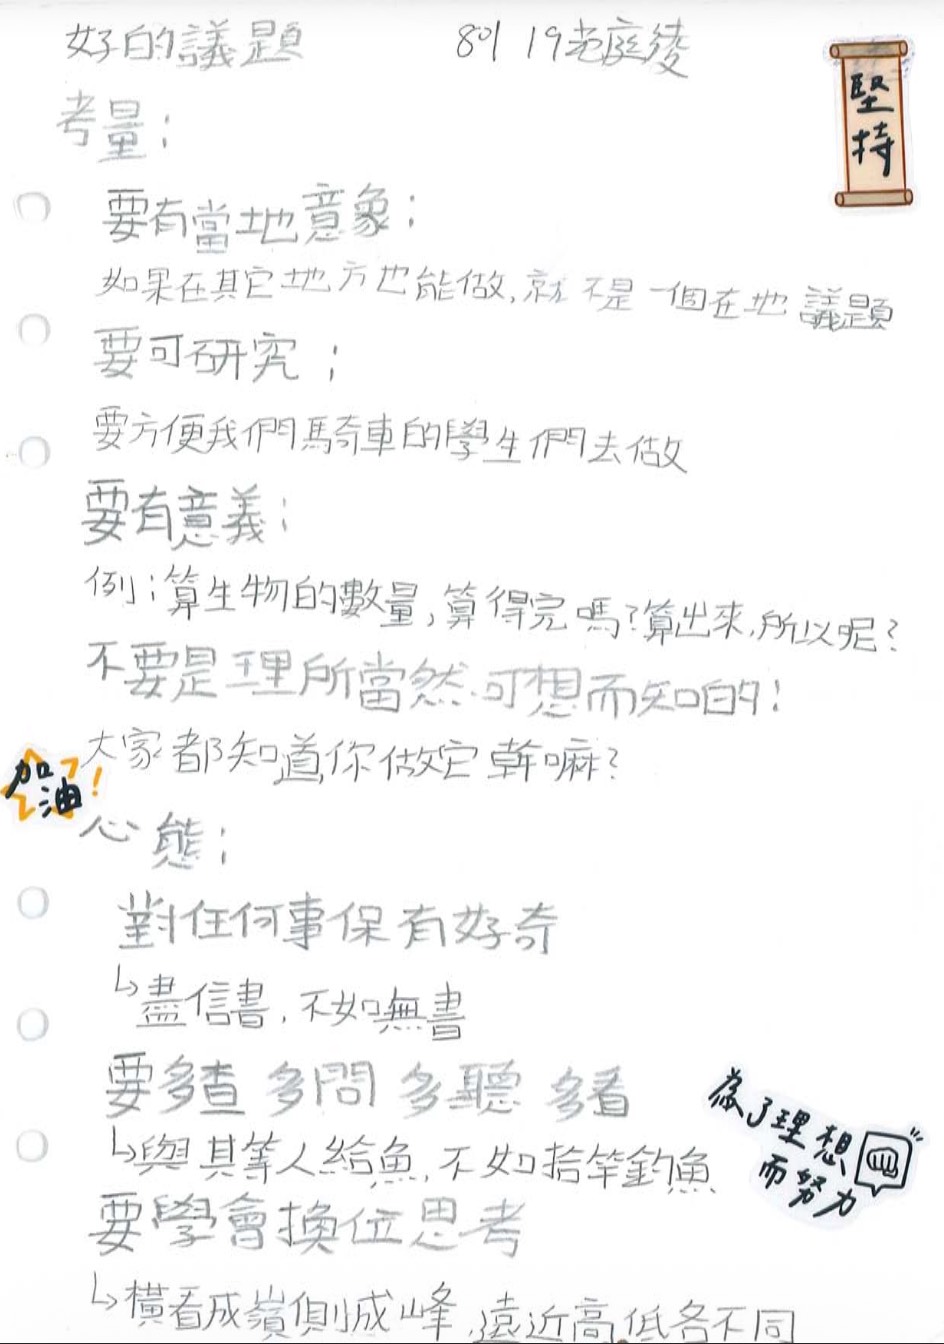 好的議題 801 19 庭綾
堅持
考量：
要有當地意象：
如果在其它地方也能做,就不是一個在地議題
要可研究：
要方便我們騎車的學生們去做
要有意義：
例：算生物的數量,算得完嗎?算出來,所以呢?
不要是理所當然.可想而知的!
大家都知道,你做它幹嘛?
加油!
心態：
對任何事保有好奇
↳盡信書,不如無書
要多查 多問 多聽 多看
↳與其等人給魚,不如拾竿釣魚
為了理想
而努力
要學會換位思考
↳橫看成嶺側成峰,遠近高低各不同